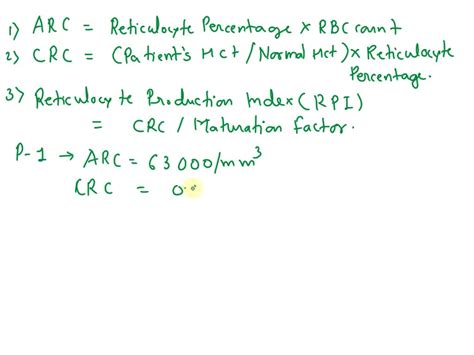 1) ARC = Reticulocyte Percentage x RBC count
2) CRC = (Patient's Hct / Normal Hct) x Reticulocyte
Percentage.
3) Reticulocyte Production Index (RPI)
= CRC / Maturation factor.
P-1 → ARC = 63000/mm³
CRC = 0.